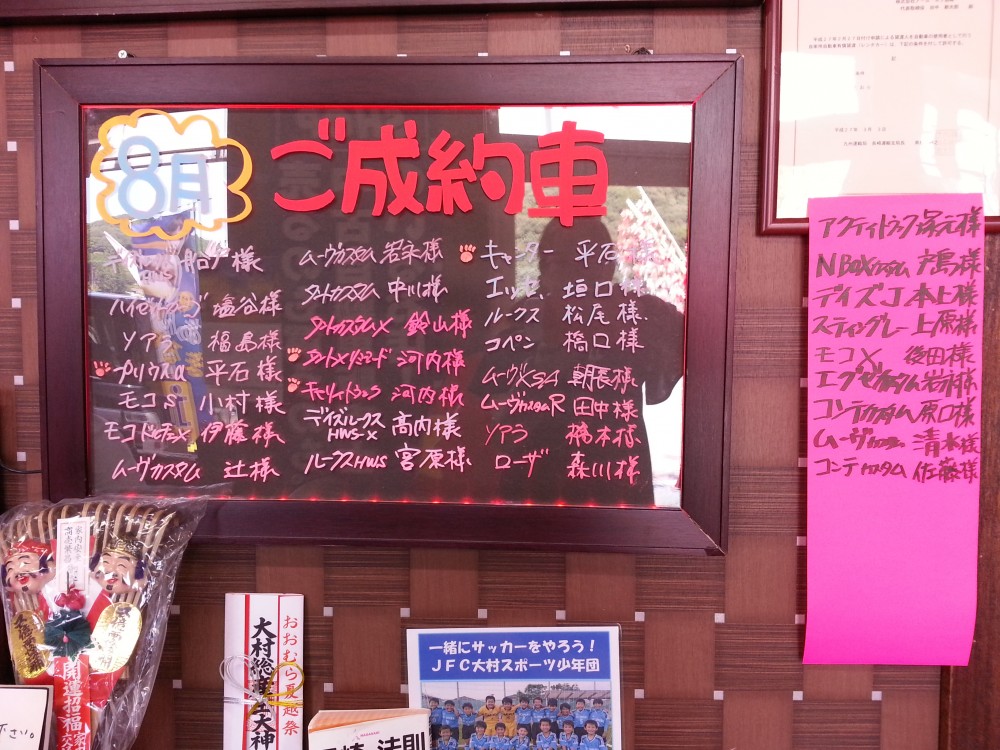 8月
ご成約車
船口 様
塩谷様
ソアラ 福島様
プリウスα 平石様
モコS 小村様
モコドルチェX 伊藤様
ムーヴカスタム 辻様
ムーヴカスタム 岩永様
タントカスタム 中川様
タントカスタムX 鈴山様
河内様
キャリイトラック 河内様
デイズルークス HWS-X 高内様
ルークスHWS 宮原様
キャンター 平石 様
エッセ 垣口様
ルークス 松尾様
コペン 橋口様
ムーヴXSA 朝長様
ムーヴカスタムR 田中様
ソアラ 橋本様
ローザ 森川様
アクティトラック 塚元様
N BOXカスタム 戸島様
デイズJ 本上様
スティングレー 上原様
モコX 後田様
岩永様
コンテカスタム 原口様
ムーヴカスタム 清水様
コンテカスタム 佐藤様
家内安全
商売繁昌
開運招福
おおむら夏越祭
大村総氏神
一緒にサッカーをやろう!
JFC大村スポーツ少年団
法則
下さい。